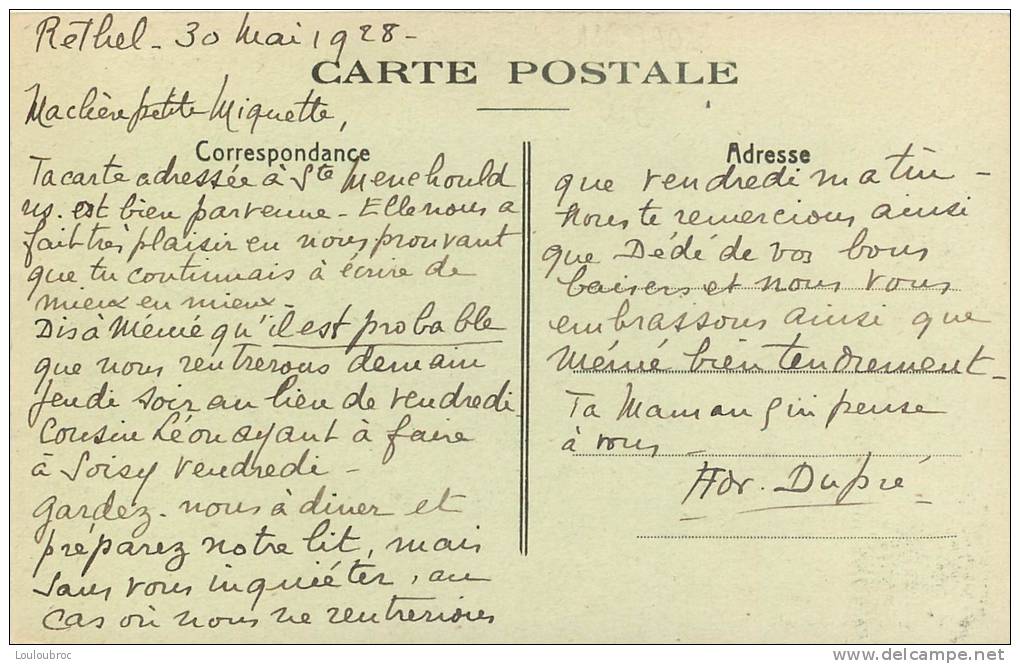 Rethel - 30 Mai 1928 -
CARTE POSTALE
Ma chère petite Miquette,
Correspondance
Ta carte adressée à Ste Menehould
ns. est bien parvenue - Elle nous a
fait très plaisir en nous prouvant
que tu continuais à écrire de
mieux en mieux -
Dis à Mémé qu'il est probable
que nous rentrerons demain
Jeudi soir au lieu de vendredi
Cousin Léon ayant à faire
à Soisy vendredi -
Gardez-nous à diner et
préparez notre lit, mais
sans vous inquiéter, au
cas où nous ne rentrerions
Adresse
que vendredi matin -
Nous te remercions ainsi
que Dédé de vos bons
baisers et nous vous
embrassons ainsi que
Mémé bien tendrement -
Ta Maman qui pense
à vous -
Hor. Dupré
Louloubroc
www.delcampe.net